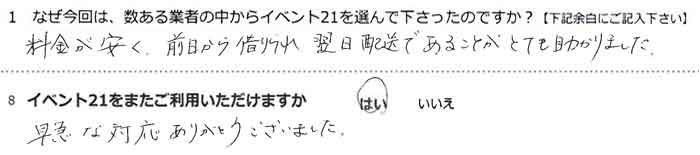 1 なぜ今回は、数ある業者の中からイベント21を選んで下さったのですか？【下記余白にご記入下さい】
料金が安く、前日から借りられ 翌日配送であることがとても助かりました。
8 イベント21をまたご利用いただけますか はい いいえ
早急な対応ありがとうございました。